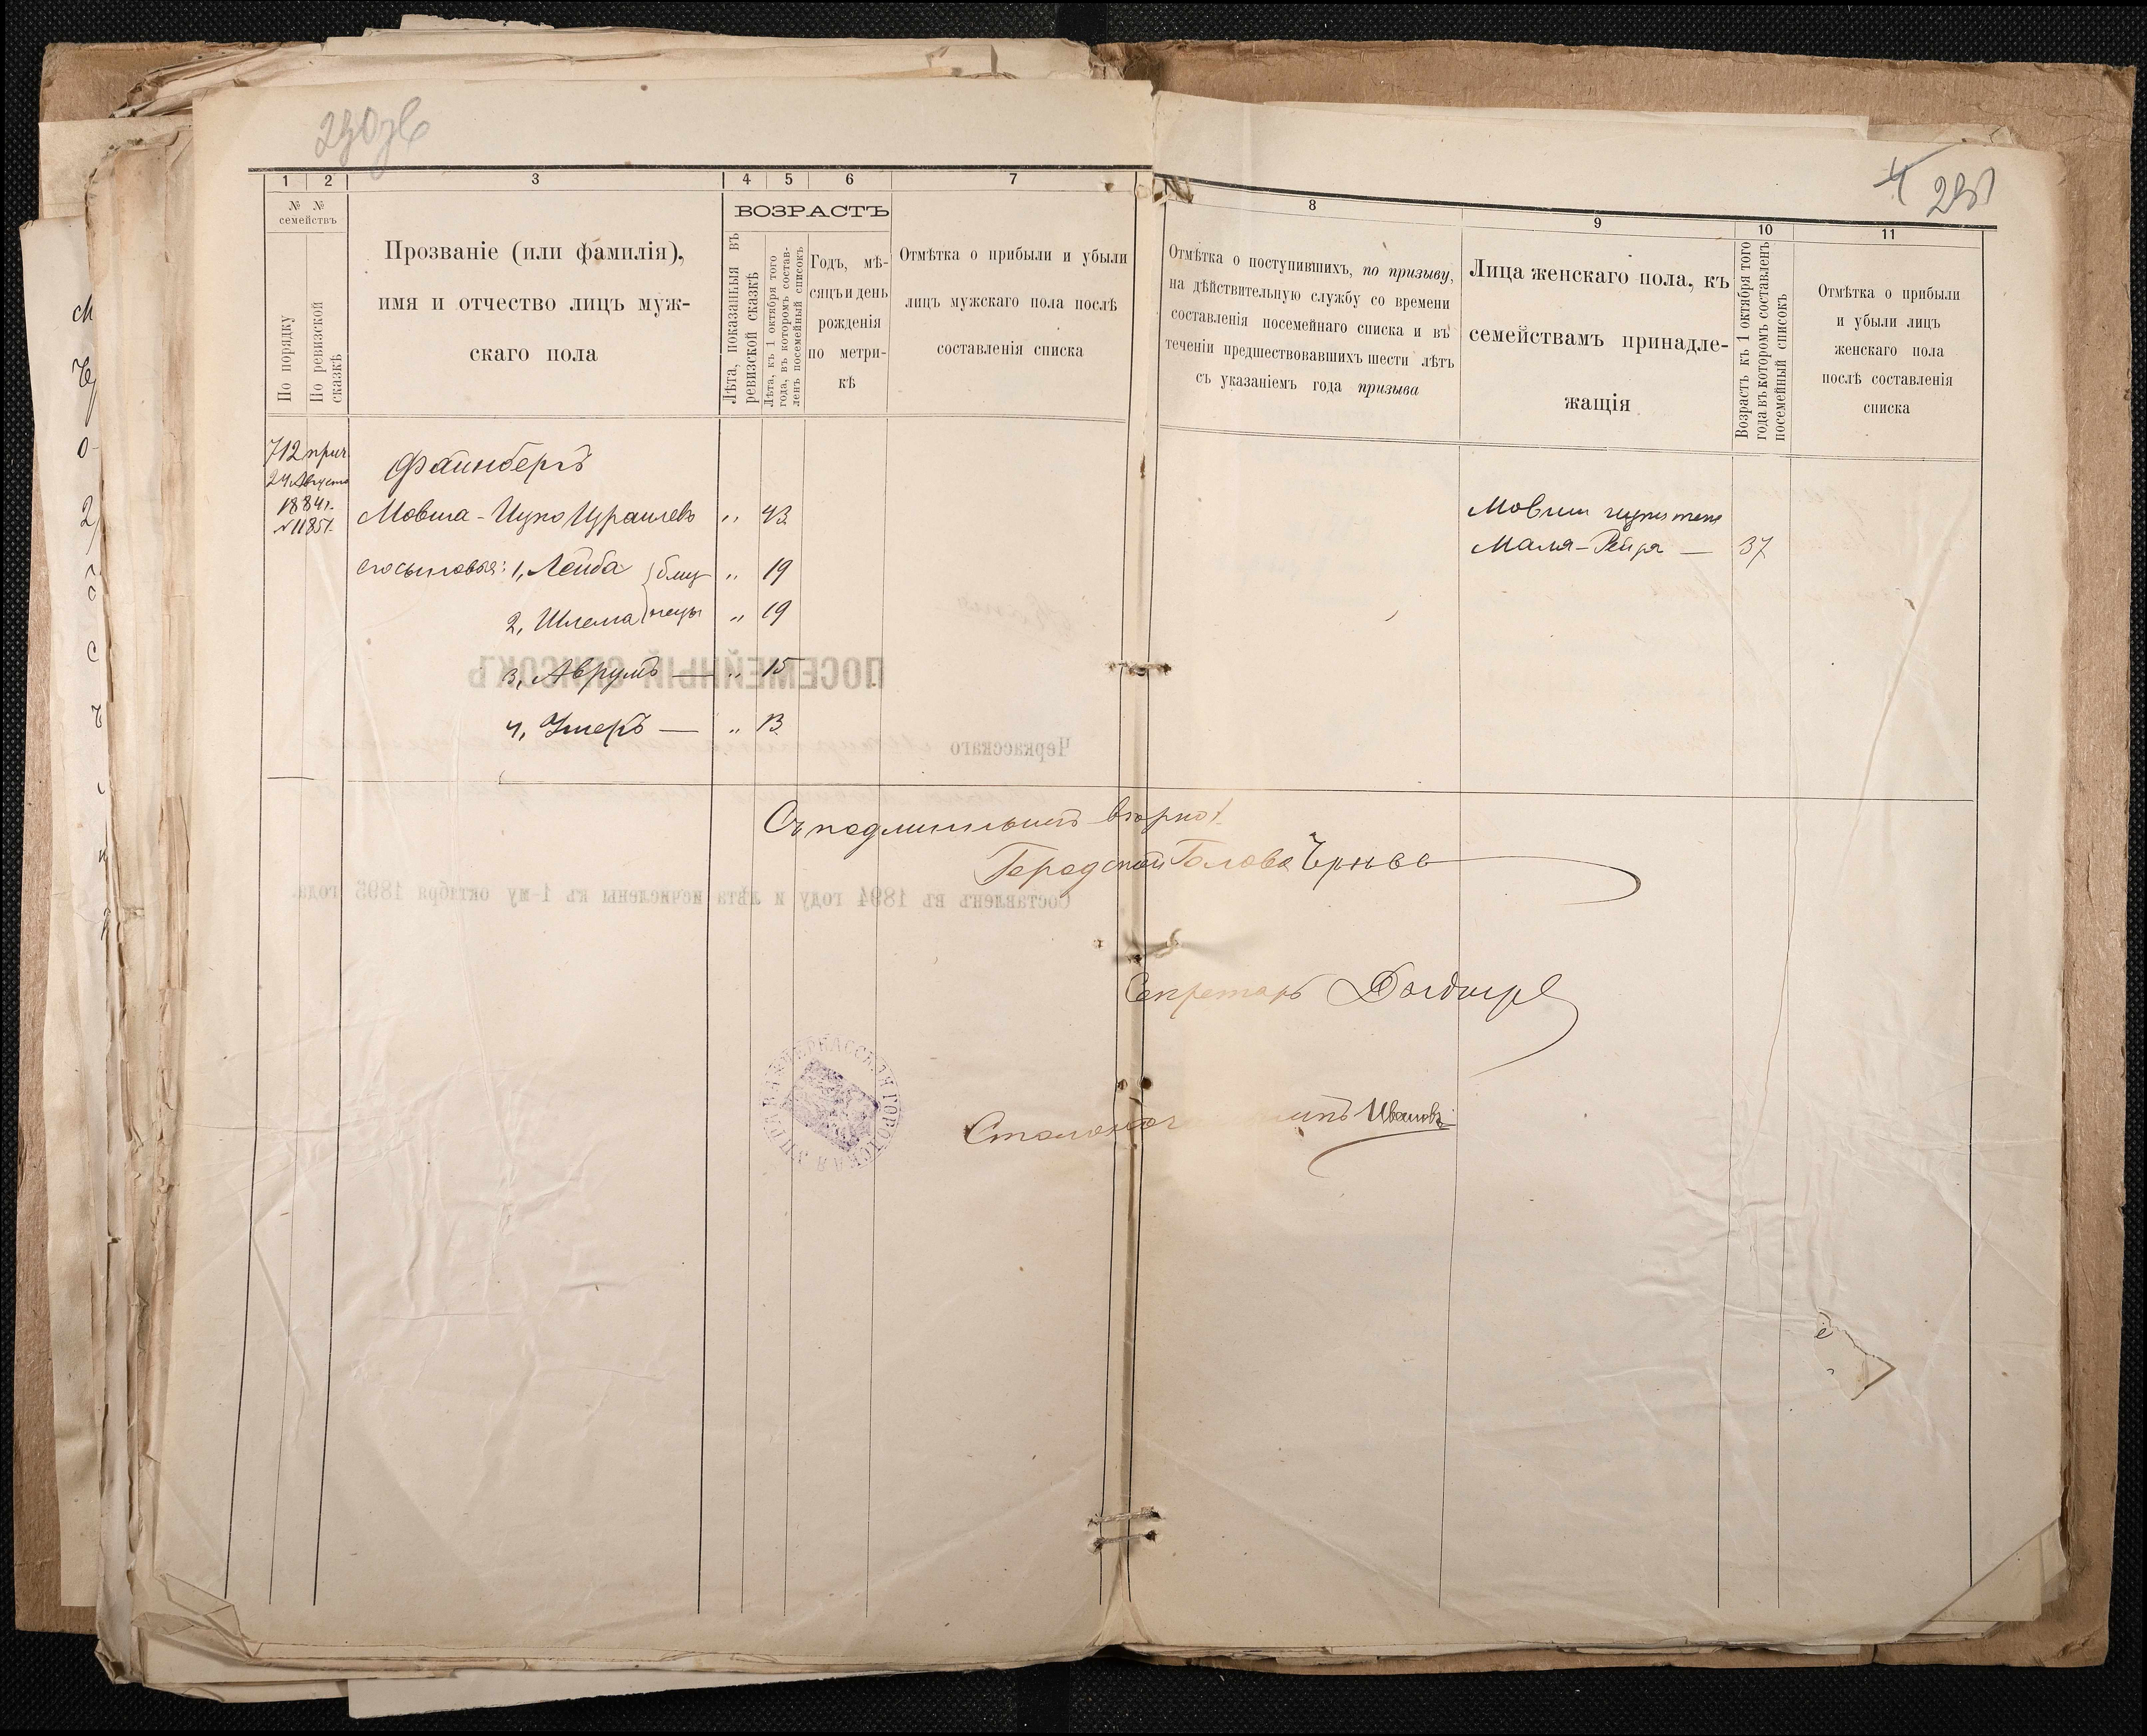 1 2 3 4 5 6 7
№ № семействъ
По порядку
По ревизской сказкѣ
Прозваніе (или фамилія),
имя и отчество лицъ муж-
скаго пола
ВОЗРАСТЪ
Лѣта, показанныя въ
ревизской сказкѣ
Лѣта, къ 1 октября того
года, въ которомъ состав-
ленъ посемейный списокъ
Годъ, мѣ-
сяцъ и день
рожденія
по метри-
кѣ
Отмѣтка о прибыли и убыли
лицъ мужскаго пола послѣ
составленія списка
712 прич
24 Августа
1884 г.
№ 1185
Файнбергъ
Мовша-Ицко Израилевъ „ 43
его сыновья: 1, Лейба } близ- „ 19
2, Шлема } нецы „ 19
3, Аврумъ — „ 15
4, Ушеръ — „ 13
ПОСЕМЕЙНЫЙ СПИСОКЪ
Черкасскаго
Составленъ въ 1894 году и лѣта исчислены къ 1-му октября 1895 года.
8 9 10 11
Отмѣтка о поступившихъ, по призыву,
на дѣйствительную службу со времени
составленія посемейнаго списка и въ
теченіи предшествовавшихъ шести лѣтъ
съ указаніемъ года призыва
Лица женскаго пола, къ
семействамъ принадле-
жащія
Возрастъ къ 1 октября того
года въ которомъ составленъ
посемейный списокъ
Отмѣтка о прибыли
и убыли лицъ
женскаго пола
послѣ составленія
списка
Мовши Ицки жена
Маля-Рейзя — 37
Съ подлиннымъ вѣрно:
Городской Голова
Секретарь
Ивановъ
ЧЕРКАССКАЯ ГОРОДСКАЯ УПРАВА